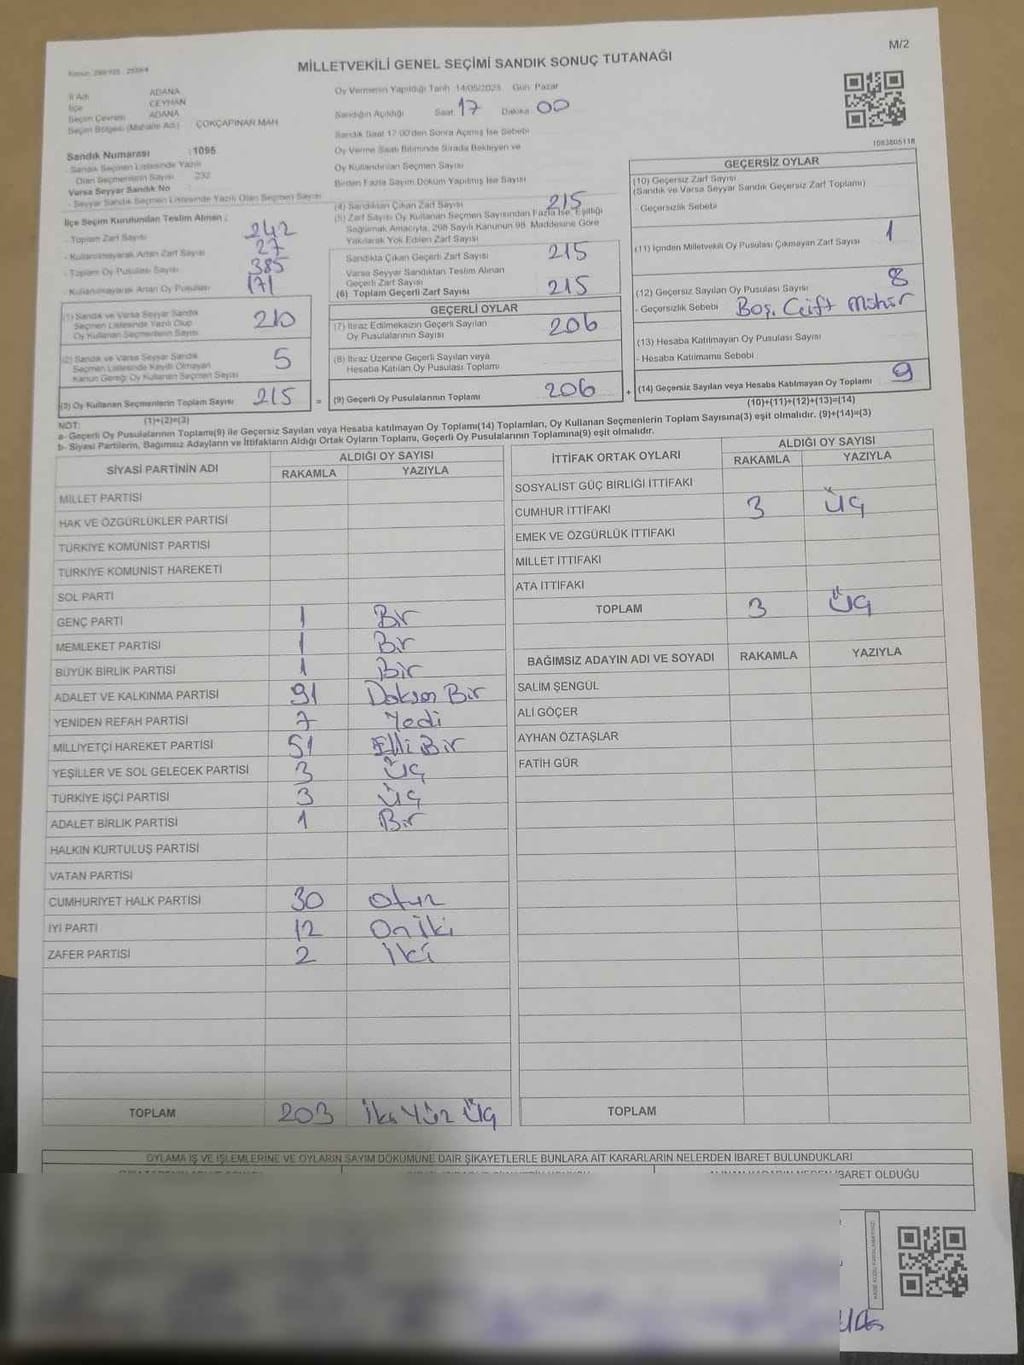 M/2
MİLLETVEKİLİ GENEL SEÇİMİ SANDIK SONUÇ TUTANAĞI
İl Adı ADANA
İlçe CEYHAN
Seçim Çevresi ADANA
Seçim Bölgesi (Mahalle Adı) : ÇOKÇAPINAR MAH
Sandık Numarası : 1095
Sandık Seçmen Listesinde Yazılı
Olan Seçmenlerin Sayısı : 232
Varsa Seyyar Sandık No
- Seyyar Sandık Seçmen Listesinde Yazılı Olan Seçmen Sayısı
İlçe Seçim Kurulundan Teslim Alınan :
- Toplam Zarf Sayısı 242
- Kullanılmayarak Artan Zarf Sayısı 27
- Toplam Oy Pusulası Sayısı 385
- Kullanılmayarak Artan Oy Pusulası 171
(1) Sandık ve Varsa Seyyar Sandık
Seçmen Listesinde Yazılı Olup
Oy Kullanan Seçmenlerin Sayısı 210
(2) Sandık ve Varsa Seyyar Sandık
Seçmen Listesinde Kayıtlı Olmayan
Kanun Gereği Oy Kullanan Seçmen Sayısı 5
(3) Oy Kullanan Seçmenlerin Toplam Sayısı 215 =
(1)+(2)=(3)
Oy Vermenin Yapıldığı Tarih 14/05/2023 Gün Pazar
Sandığın Açıldığı Saat 17 Dakika 00
Sandık Saat 17:00'den Sonra Açılmış İse Sebebi
Oy Verme Saati Bitiminde Sırada Bekleyen ve
Oy Kullandırılan Seçmen Sayısı
Birden Fazla Sayım Döküm Yapılmış İse Sayısı
(4) Sandıktan Çıkan Zarf Sayısı 215
(5) Zarf Sayısı Oy Kullanan Seçmen Sayısından Fazla İse, Eşitliği
Sağlamak Amacıyla, 298 Sayılı Kanunun 98. Maddesine Göre
Yakılarak Yok Edilen Zarf Sayısı
Sandıkta Çıkan Geçerli Zarf Sayısı 215
Varsa Seyyar Sandıktan Teslim Alınan
Geçerli Zarf Sayısı
(6) Toplam Geçerli Zarf Sayısı 215
GEÇERLİ OYLAR
(7) İtiraz Edilmeksizin Geçerli Sayılan
Oy Pusulalarının Sayısı 206
(8) İtiraz Üzerine Geçerli Sayılan veya
Hesaba Katılan Oy Pusulası Toplamı
(9) Geçerli Oy Pusulalarının Toplamı 206 +
1083805118
GEÇERSİZ OYLAR
(10) Geçersiz Zarf Sayısı
(Sandık ve Varsa Seyyar Sandık Geçersiz Zarf Toplamı)
- Geçersizlik Sebebi
(11) İçinden Milletvekili Oy Pusulası Çıkmayan Zarf Sayısı 1
(12) Geçersiz Sayılan Oy Pusulası Sayısı 8
- Geçersizlik Sebebi Boş. Çift Mühür
(13) Hesaba Katılmayan Oy Pusulası Sayısı
- Hesaba Katılmama Sebebi
(14) Geçersiz Sayılan veya Hesaba Katılmayan Oy Toplamı 9
(10)+(11)+(12)+(13)=(14)
NOT:
a- Geçerli Oy Pusulalarının Toplamı(9) ile Geçersiz Sayılan veya Hesaba katılmayan Oy Toplamı(14) Toplamları, Oy Kullanan Seçmenlerin Toplam Sayısına(3) eşit olmalıdır. (9)+(14)=(3)
b- Siyasi Partilerin, Bağımsız Adayların ve İttifakların Aldığı Ortak Oyların Toplamı, Geçerli Oy Pusulalarının Toplamına(9) eşit olmalıdır.
SİYASİ PARTİNİN ADI ALDIĞI OY SAYISI
RAKAMLA YAZIYLA
MİLLET PARTİSİ
HAK VE ÖZGÜRLÜKLER PARTİSİ
TÜRKİYE KOMÜNİST PARTİSİ
TÜRKİYE KOMÜNİST HAREKETİ
SOL PARTİ
GENÇ PARTİ 1 Bir
MEMLEKET PARTİSİ 1 Bir
BÜYÜK BİRLİK PARTİSİ 1 Bir
ADALET VE KALKINMA PARTİSİ 91 Doksan Bir
YENİDEN REFAH PARTİSİ 7 Yedi
MİLLİYETÇİ HAREKET PARTİSİ 51 Elli Bir
YEŞİLLER VE SOL GELECEK PARTİSİ 3 Üç
TÜRKİYE İŞÇİ PARTİSİ 3 Üç
ADALET BİRLİK PARTİSİ 1 Bir
HALKIN KURTULUŞ PARTİSİ
VATAN PARTİSİ
CUMHURİYET HALK PARTİSİ 30 Otuz
İYİ PARTİ 12 On İki
ZAFER PARTİSİ 2 İki
TOPLAM 203 İki Yüz Üç
İTTİFAK ORTAK OYLARI ALDIĞI OY SAYISI
RAKAMLA YAZIYLA
SOSYALİST GÜÇ BİRLİĞİ İTTİFAKI
CUMHUR İTTİFAKI 3 Üç
EMEK VE ÖZGÜRLÜK İTTİFAKI
MİLLET İTTİFAKI
ATA İTTİFAKI
TOPLAM 3 Üç
BAĞIMSIZ ADAYIN ADI VE SOYADI RAKAMLA YAZIYLA
SALİM ŞENGÜL
ALİ GÖÇER
AYHAN ÖZTAŞLAR
FATİH GÜR
TOPLAM
OYLAMA İŞ VE İŞLEMLERİNE VE OYLARIN SAYIM DÖKÜMÜNE DAİR ŞİKAYETLERLE BUNLARA AİT KARARLARIN NELERDEN İBARET BULUNDUKLARI
İBARET OLDUĞU